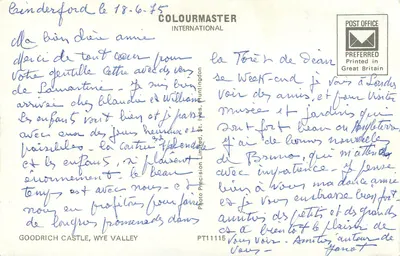 Cinderford le 18-6-75
COLOURMASTER
INTERNATIONAL
POST OFFICE
PREFERRED
Printed in
Great Britain
Ma bien chère amie
Merci de tout cœur pour
votre gentille lettre avec des vers
de Lamartine. Je suis bien
arrivée chez Blandine et William
les enfants vont bien et je passe
avec eux des jours heureux et
paisibles. la Cottage splendide
et les enfants s'y plaisent
énormement. le beau
temps est avec nous et
nous en profitons pour faire
de longues promenades dans
la Forêt de Dean
ce Week-end je vais à Londres
voir des amis, et pour visiter
musée et jardins qui
sont fort beau en Angleterre
J'ai de bonnes nouvelles
de Bruno, qui m'attend
avec impatience. Je pense
bien à vous ma chère amie
et je vous embrasse bien fort
amitiés des petits et des grands
et à bientôt le plaisir de
vous voir. Amitiés autour de
vous
Photo Precision Limited, St. Ives, Huntingdon
GOODRICH CASTLE, WYE VALLEY
PT11115